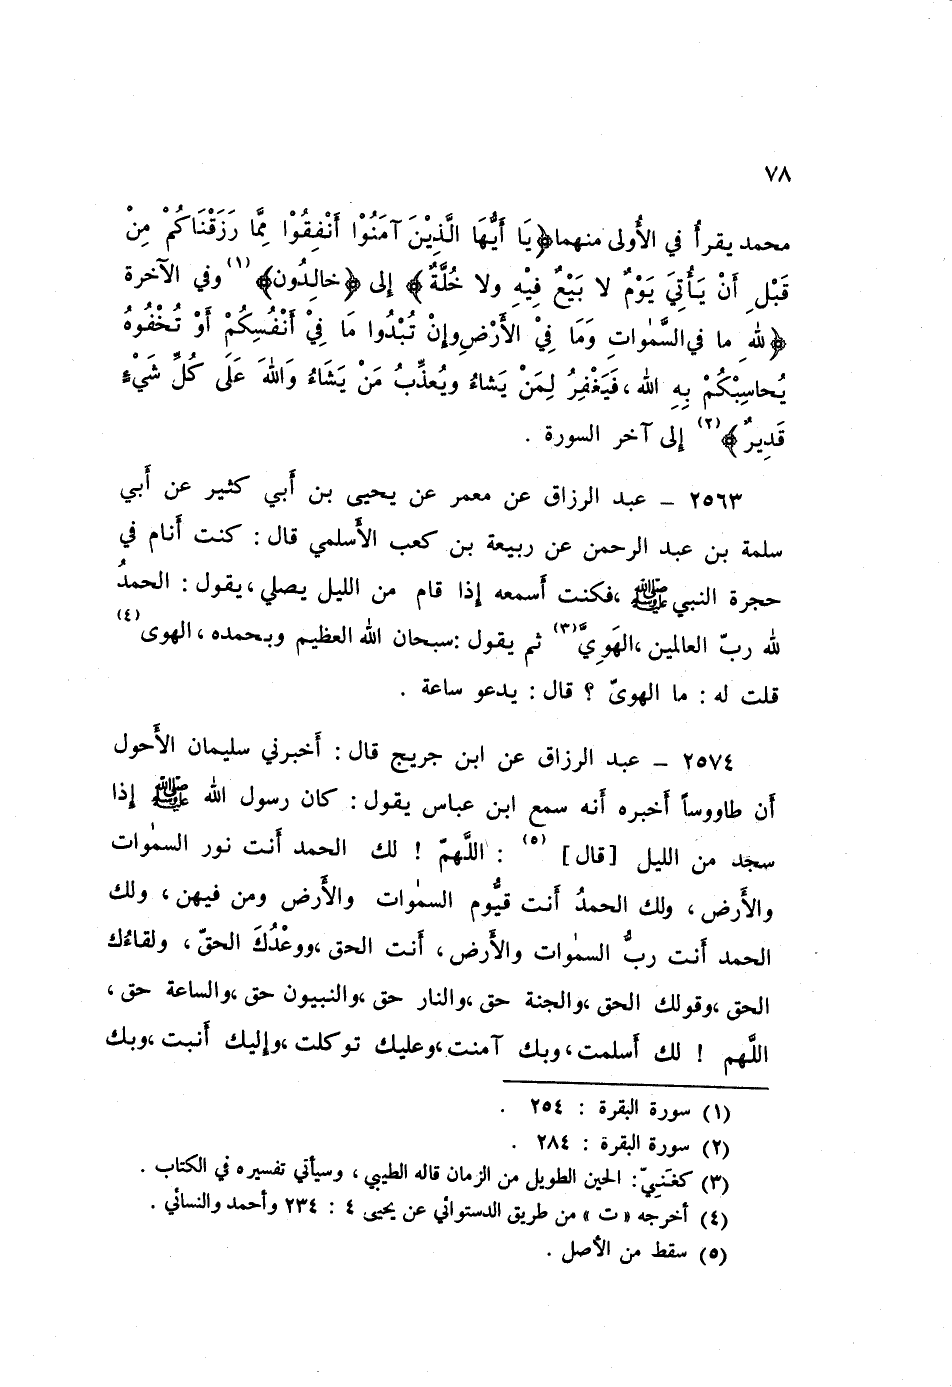 ٧٨
محمد يقرأُ في الأُولى منهما﴿يَا أَيُّهَا الَّذِيْنَ آمَنُوْا أَنْفِقُوْا مِمَّا رَزَقْنَاكُمْ مِنْ
قَبْلِ أَنْ يَأْتِيَ يَوْمٌ لا بَيْعٌ فِيْهِ ولا خُلَّةٌ﴾ إلى ﴿خالِدُون﴾(١) وفي الآخرة
﴿للهِ ما في السَّمٰواتِ وَمَا فِيْ الأَرْضِ وإنْ تُبْدُوا مَا فِيْ أَنْفُسِكُمْ أَوْ تُخْفُوهُ
يُحاسِبْكُمْ بِهِ الله ، فَيَغْفِرُ لِمَنْ يَشاءُ ويُعذِّبُ مَنْ يَشَاءُ وَاللهُ عَلَى كُلِّ شَيْءٍ
قَدِيرٌ﴾(٢) إلى آخر السورة .
٢٥٦٣ – عبد الرزاق عن معمر عن يحيى بن أَبي كثير عن أَبي
سلمة بن عبد الرحمن عن ربيعة بن كعب الأَسلمي قال : كنت أَنام في
حجرة النبي ﷺ ، فكنت أَسمعه إذا قام من الليل يصلي ، يقول : الحمدُ
لله ربّ العالمين ، الهَوِيَّ(٣) ثم يقول : سبحان الله العظيم وبحمده ، الهوى(٤)
قلت له : ما الهوىّ ؟ قال : يدعو ساعة .
٢٥٧٤ – عبد الرزاق عن ابن جريج قال : أَخبرني سليمان الأَحول
أَن طاووساً أَخبره أَنه سمع ابن عباس يقول : كان رسول الله ﷺ إذا
سجد من الليل [قال] (٥) : اللَّهمّ ! لك الحمد أَنت نور السمٰوات
والأَرض ، ولك الحمدُ أَنت قيُّوم السمٰوات والأَرض ومن فيهن ، ولك
الحمد أَنت ربُّ السمٰوات والأَرض ، أَنت الحق ، ووعْدُكَ الحقّ ، ولقاءُك
الحق ، وقولك الحق ، والجنة حق ، والنار حق ، والنبيون حق ، والساعة حق ،
اللَّهم ! لك أَسلمت ، وبك آمنت ، وعليك توكلت ، وإليك أَنبت ، وبك
(١) سورة البقرة : ٢٥٤ .
(٢) سورة البقرة : ٢٨٤ .
(٣) كغَنِيّ : الحين الطويل من الزمان قاله الطيبي ، وسيأتي تفسيره في الكتاب .
(٤) أخرجه « ت » من طريق الدستوائي عن يحيى ٤ : ٢٣٤ وأحمد والنسائي .
(٥) سقط من الأصل .